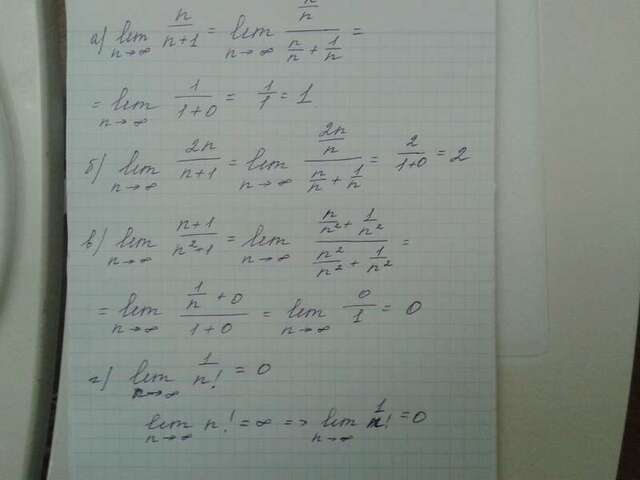 а) lim n→∞ n/(n+1) = lim n→∞ (n/n)/(n/n + 1/n) =
= lim n→∞ 1/(1+0) = 1/1 = 1
б) lim n→∞ 2n/(n+1) = lim n→∞ (2n/n)/(n/n + 1/n) = 2/(1+0) = 2
в) lim n→∞ (n+1)/(n²+1) = lim n→∞ (n/n² + 1/n²)/(n²/n² + 1/n²) =
= lim n→∞ (1/n + 0)/(1+0) = lim n→∞ 0/1 = 0
г) lim n→∞ 1/n! = 0
lim n→∞ n! = ∞ => lim n→∞ 1/n! = 0